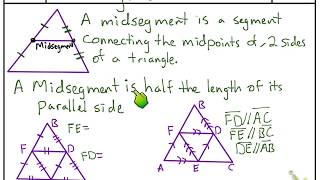 A midsegment is a segment
Connecting the midpoints of 2 sides
of a triangle.
Midsegment
A Midsegment is half the length of its
Parallel side
B
F
D
FE=
FD=
B
F
D
A
E
C
FD//AC
FE//BC
DE//AB